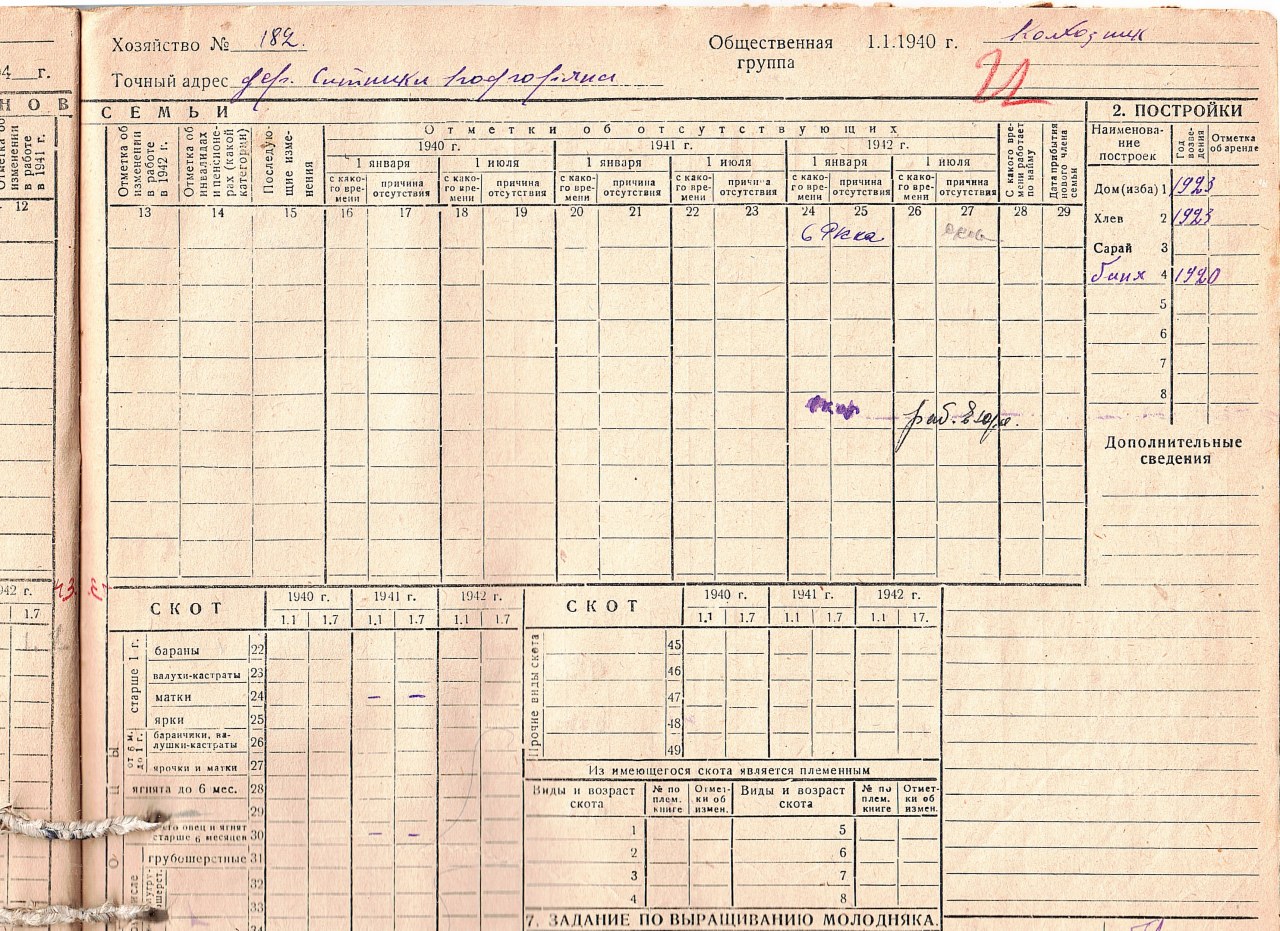 Хозяйство № 182.
Общественная группа 1.1.1940 г. Колхозник
4 г.
Точный адрес дер. Ситники
НОВ
СЕМЬИ
2. ПОСТРОЙКИ
изменении в работе в 1941 г.
Отметка об изменении в работе в 1942 г.
Отметка об инвалидах и пенсионерах (какой категории)
Последующие изменения
Отметки об отсутствующих
1940 г. 1941 г. 1942 г.
1 января 1 июля 1 января 1 июля 1 января 1 июля
с како-го вре-мени причина отсутствия с како-го вре-мени причина отсутствия с како-го вре-мени причина отсутствия с како-го вре-мени причина отсутствия с како-го вре-мени причина отсутствия с како-го вре-мени причина отсутствия
С какого времени работает по найму
Дата прибытия нового члена семьи
Наименова-ние построек Год возве-дения Отметка об аренде
12 13 14 15 16 17 18 19 20 21 22 23 24 25 26 27 28 29
в Ркка
Дом (изба) 1 1923
Хлев 2 1923
Сарай 3
баня 4 1920
5
6
7
8
раб.
Дополнительные сведения
43
942 г.
1.7
СКОТ 1940 г. 1941 г. 1942 г.
1.1 1.7 1.1 1.7 1.1 1.7
старше 1 г.
бараны 22
валухи-кастраты 23
матки 24 – –
ярки 25
от 6 м. до 1 г.
баранчики, ва-лушки-кастраты 26
ярочки и матки 27
ягнята до 6 мес. 28
29
его овец и ягнят старше 6 месяцев 30 – –
грубошерстные 31
32
33
34
СКОТ 1940 г. 1941 г. 1942 г.
1.1 1.7 1.1 1.7 1.1 17.
Прочие виды скота
45
46
47
48
49
Из имеющегося скота является племенным
Виды и возраст скота № по плем. книге Отмет-ки об измен. Виды и возраст скота № по плем. книге Отмет-ки об измен.
1 5
2 6
3 7
4 8
7. ЗАДАНИЕ ПО ВЫРАЩИВАНИЮ МОЛОДНЯКА.